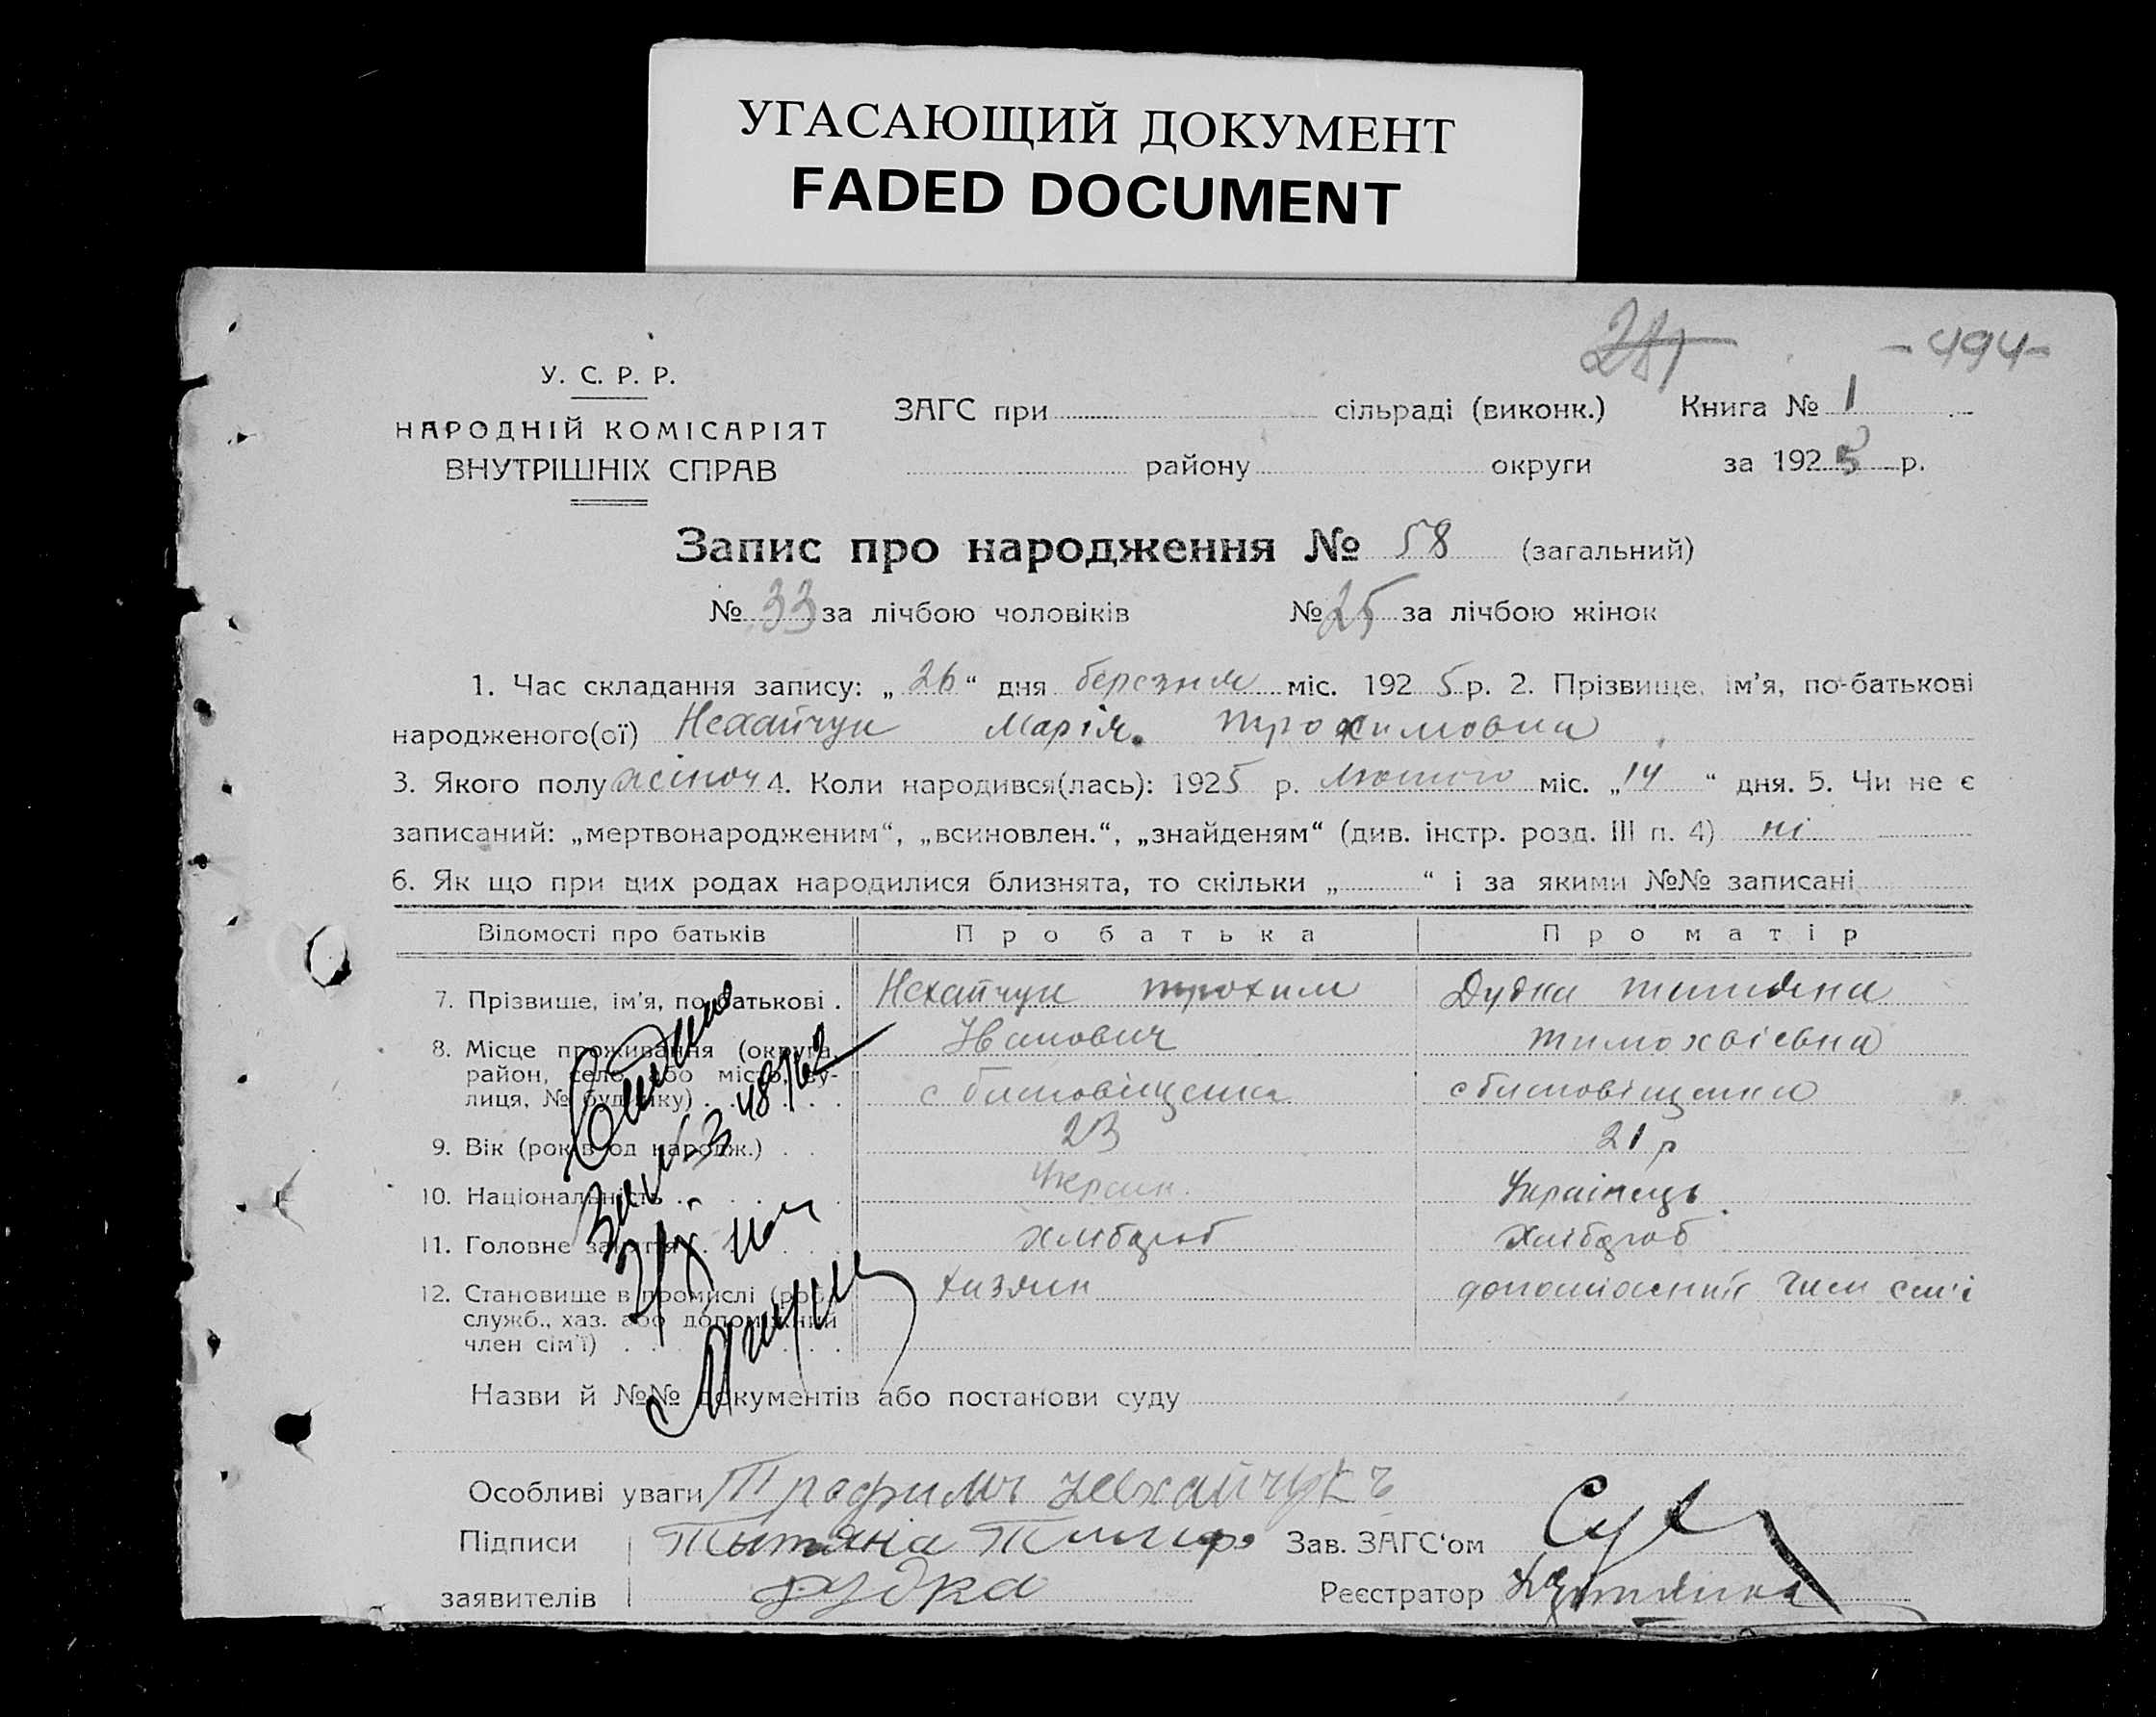 УГАСАЮЩИЙ ДОКУМЕНТ
FADED DOCUMENT
- 494 -
У. С. Р. Р.
НАРОДНІЙ КОМІСАРІЯТ
ВНУТРІШНІХ СПРАВ
ЗАГС при сільраді (виконк.) Книга № 1
району округи за 1925 р.
Запис про народження № 58 (загальний)
№ 33 за лічбою чоловіків № 25 за лічбою жінок
1. Час складання запису: „26“ дня березня міс. 1925 р. 2. Прізвище, ім’я, по-батькові
народженого(ої) Нехайчук Марія Трохимовна
3. Якого полу жіноч 4. Коли народився(лась): 1925 р. Лютого міс. „14“ дня. 5. Чи не є
записаний: „мертвонародженим“, „всиновлен.“, „знайденям“ (див. інстр. розд. III п. 4) ні
6. Як що при цих родах народилися близнята, то скільки „ “ і за якими №№ записані
Відомості про батьків Про батька Про матір
7. Прізвище, ім’я, по батькові . Нехайчук Трохим Дудка Титяна
8. Місце проживання (округа, Иванович Тимохвієвна
район, село або місто, ву-
лиця, № будинку) с Битовіщенка с Битовіщенка
9. Вік (років од народж.) 23 21 р
10. Національність Украин. Українець
11. Головне заняття Хлібороб Хлібороб
12. Становище в промислі (роб., Хазяин допоміжний член сем'ї
служб., хаз. або допоміжний
член сім’ї)
Назви й №№ документів або постанови суду
Особливі уваги Трофимъ Нехайчукъ
Підписи Тытяна Тимоф Зав. ЗАГС‘ом
заявителів Дудка Реєстратор